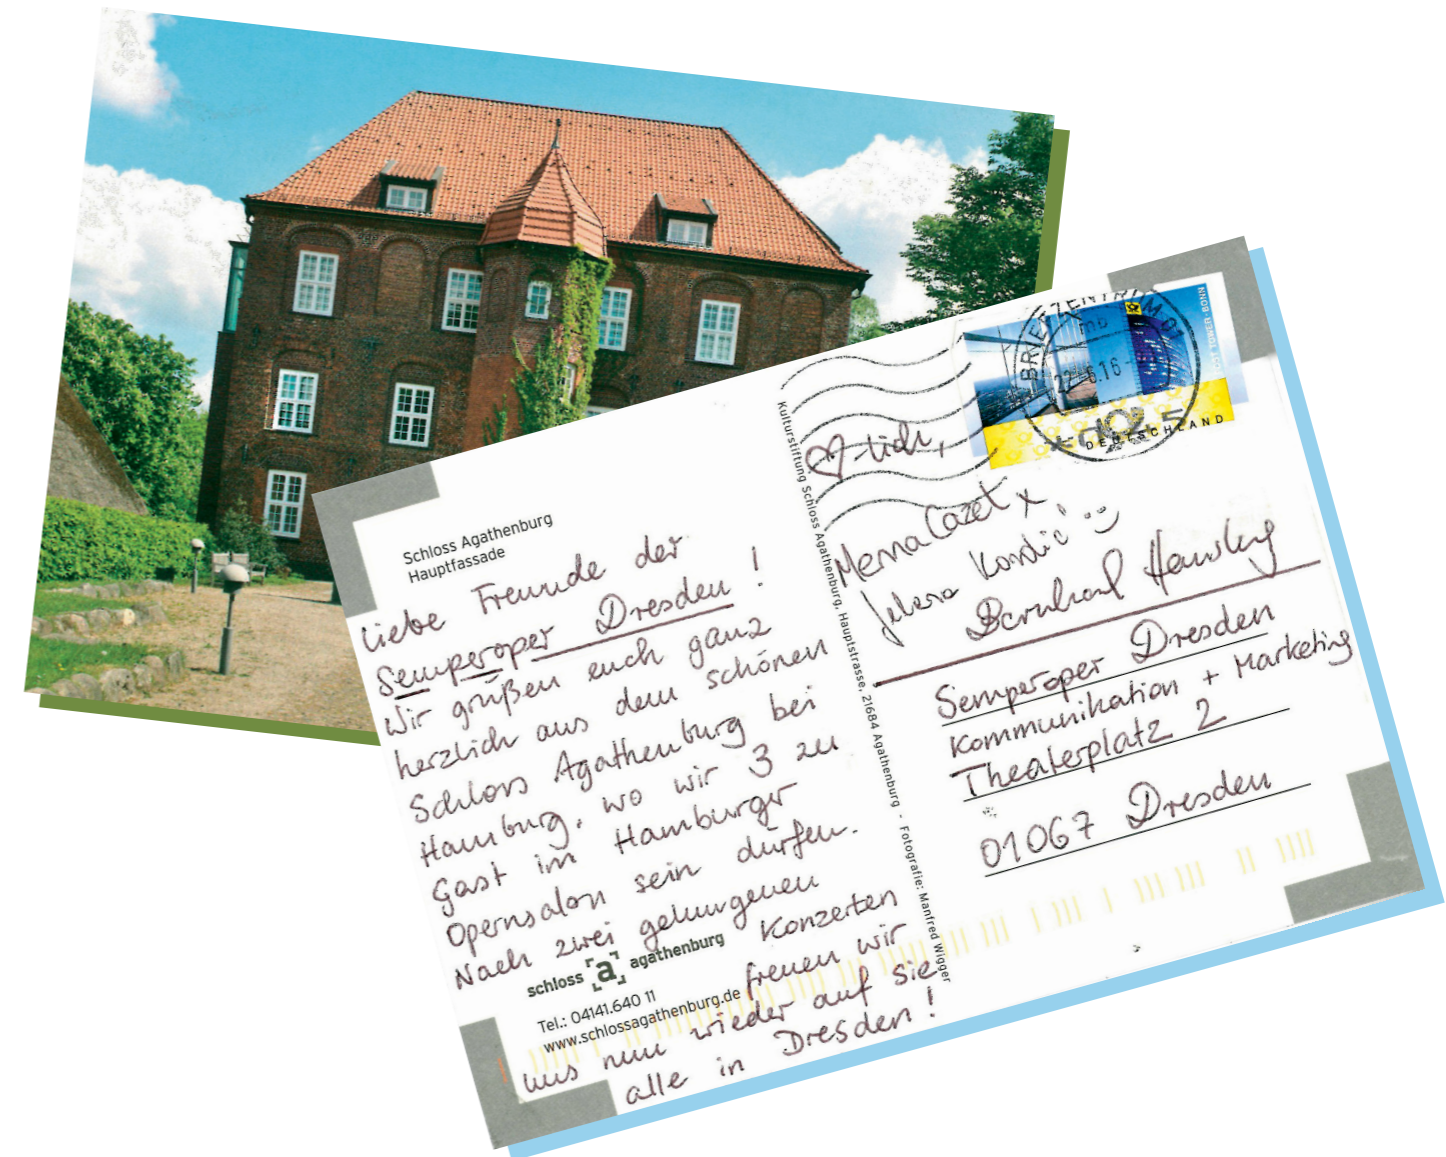 Schloss Agathenburg
Hauptfassade
Liebe Freunde der
Semperoper Dresden!
Wir grüßen euch ganz
herzlich aus dem schönen
Schloss Agathenburg bei
Hamburg, wo wir 3 zu
Gast im Hamburger
Opernsalon sein dürfen.
Nach zwei gelungenen
Konzerten
freuen wir
uns nun wieder auf Sie
alle in Dresden!
schloss a agathenburg
Tel.: 04141.640 11
www.schlossagathenburg.de
Kulturstiftung Schloss Agathenburg, Hauptstrasse, 21684 Agathenburg - Fotografie: Manfred Wigger
♡-lich,
Menna Cazel x
Jelena Kordić
Bernhard Hansky
Semperoper Dresden
Kommunikation + Marketing
Theaterplatz 2
01067 Dresden
BRIEFZENTRUM
mb
22.6.16
DEUTSCHLAND
POST TOWER · BONN